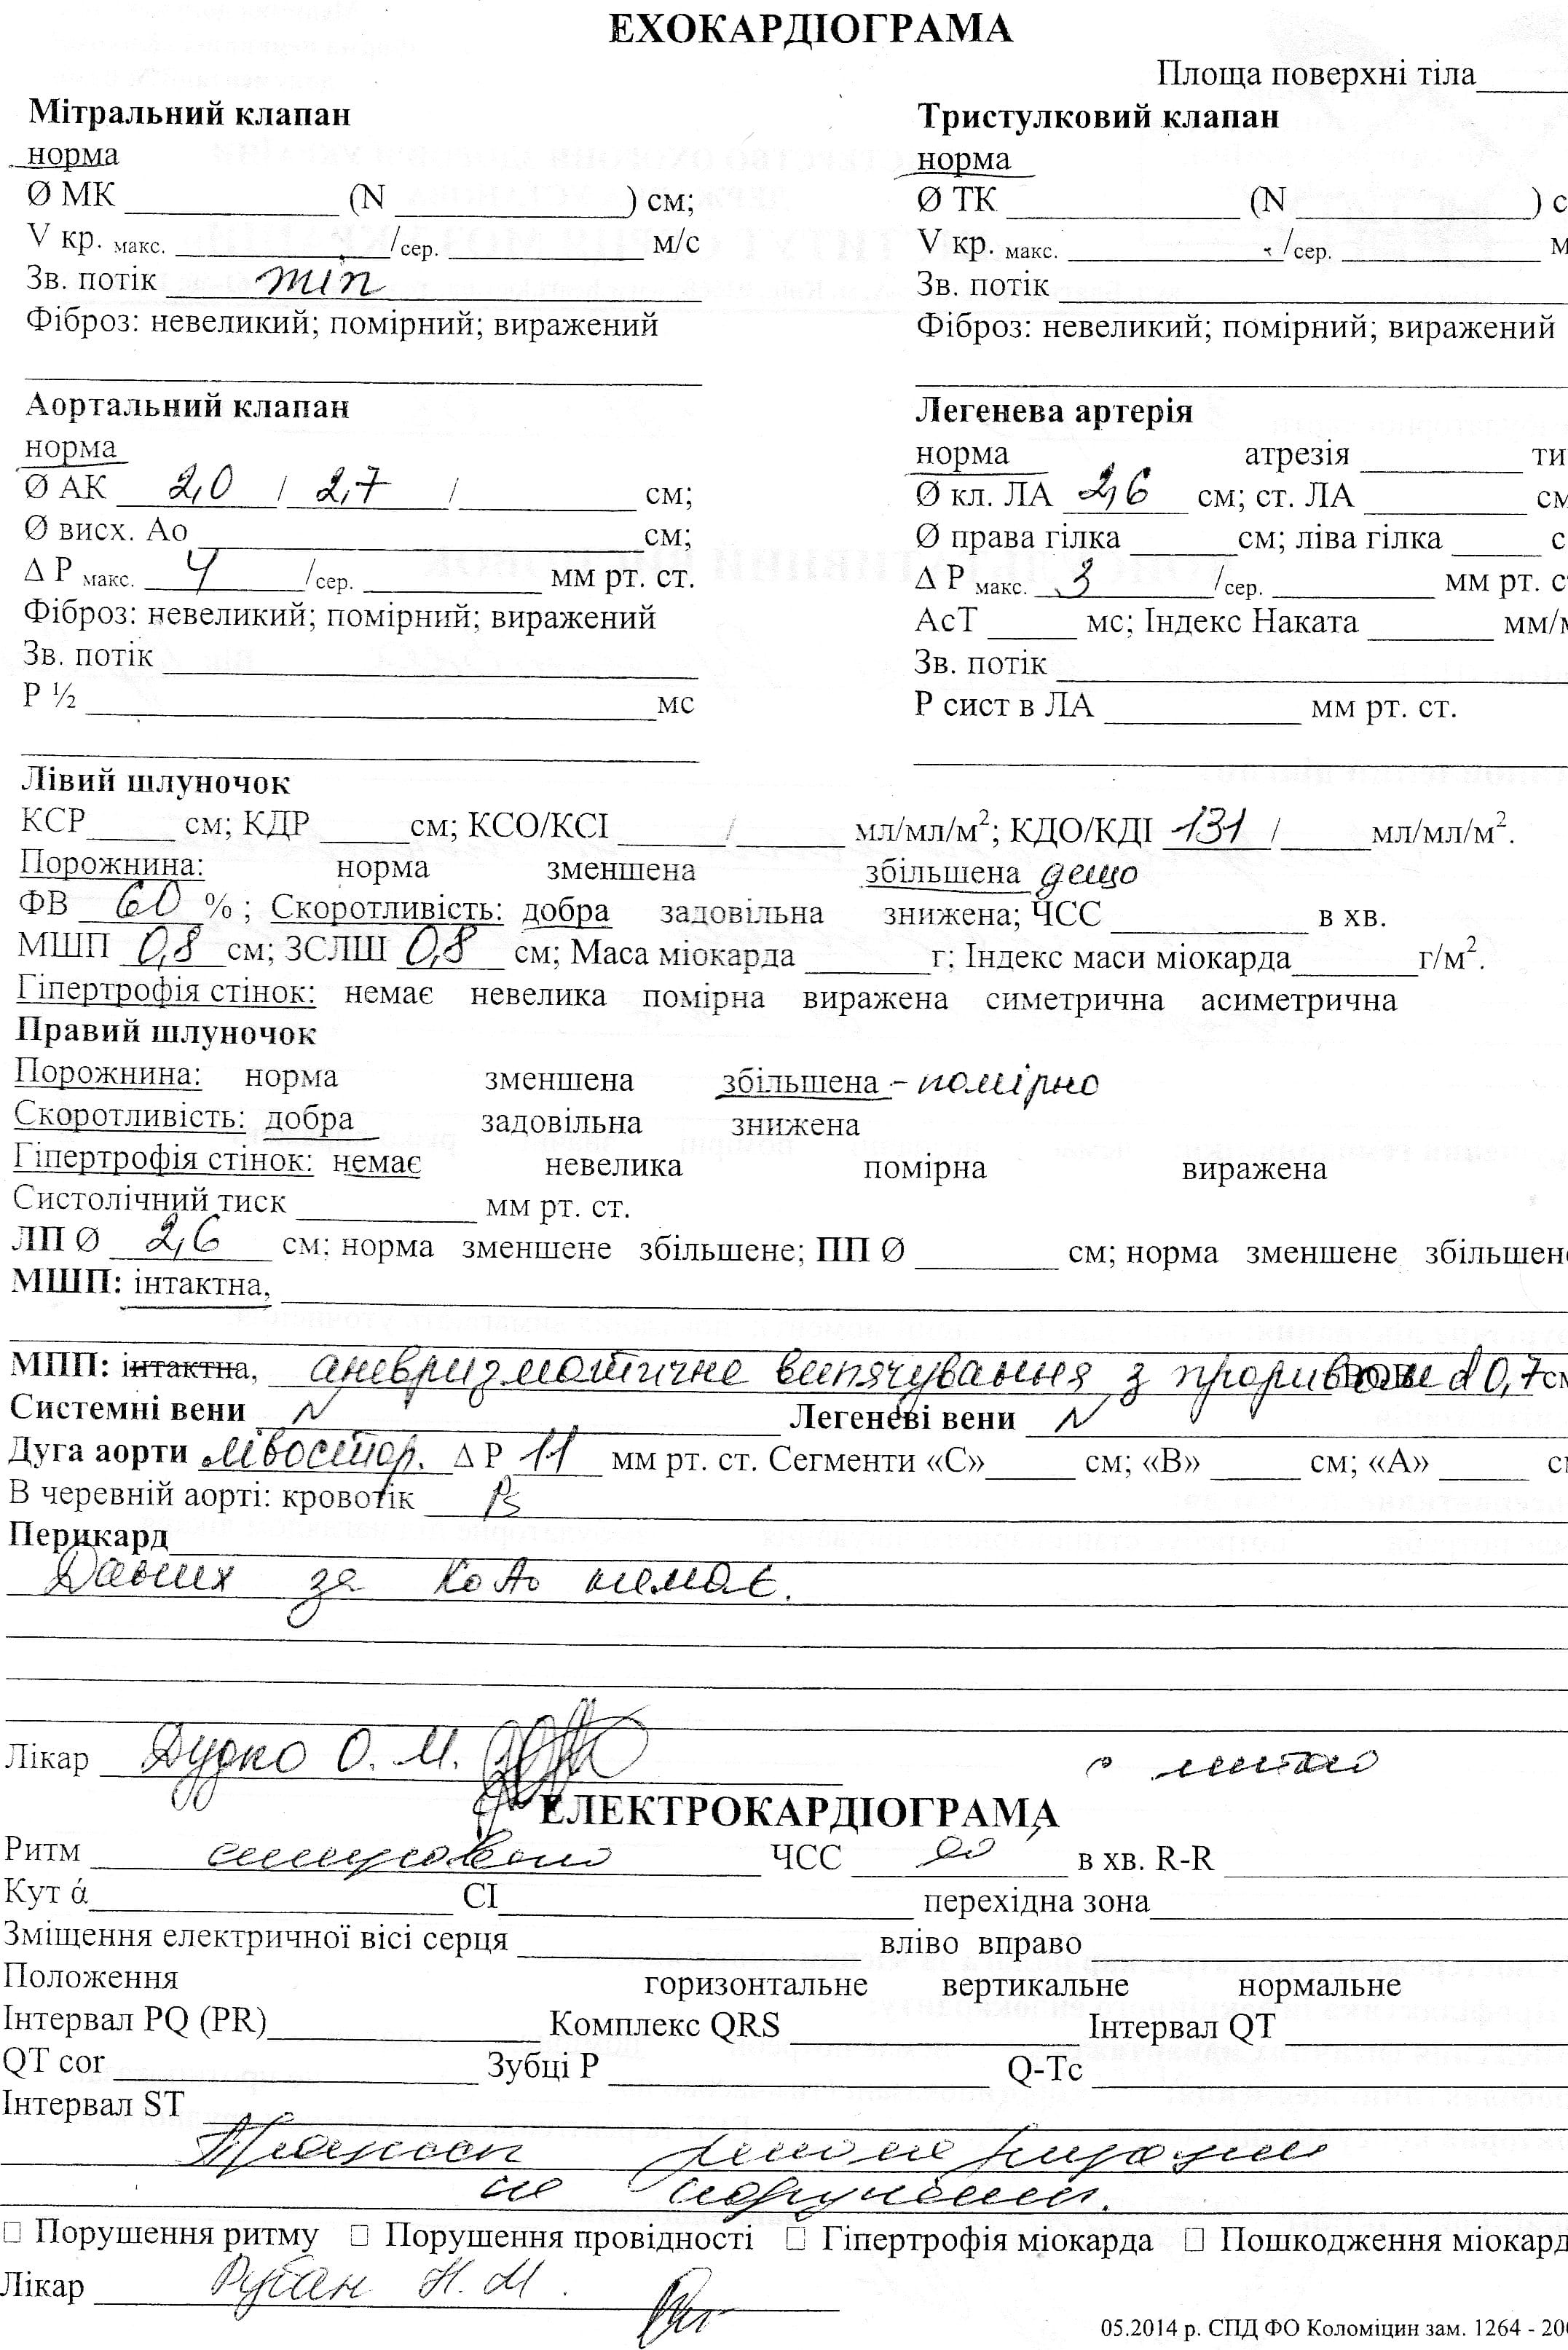 ЕХОКАРДІОГРАМА
Площа поверхні тіла
Мітральний клапан
норма
Ø МК (N ) см;
V кр. макс. /сер. м/с
Зв. потік min
Фіброз: невеликий; помірний; виражений
Тристулковий клапан
норма
Ø ТК (N ) с
V кр. макс. /сер. м
Зв. потік
Фіброз: невеликий; помірний; виражений
Аортальний клапан
норма
Ø АК 2,0 / 2,7 / см;
Ø висх. Ао см;
Δ Р макс. 4 /сер. мм рт. ст.
Фіброз: невеликий; помірний; виражений
Зв. потік
Р ½ мс
Легенева артерія
норма атрезія ти
Ø кл. ЛА 2,6 см; ст. ЛА см
Ø права гілка см; ліва гілка с
Δ Р макс. 3 /сер. мм рт. с
АсТ мс; Індекс Наката мм/м
Зв. потік
Р сист в ЛА мм рт. ст.
Лівий шлуночок
КСР см; КДР см; КСО/КСІ / мл/мл/м²; КДО/КДІ 131 / мл/мл/м².
Порожнина: норма зменшена збільшена дещо
ФВ 60 % ; Скоротливість: добра задовільна знижена; ЧСС в хв.
МШП 0,8 см; ЗСЛШ 0,8 см; Маса міокарда г; Індекс маси міокарда г/м².
Гіпертрофія стінок: немає невелика помірна виражена симетрична асиметрична
Правий шлуночок
Порожнина: норма зменшена збільшена - помірно
Скоротливість: добра задовільна знижена
Гіпертрофія стінок: немає невелика помірна виражена
Систолічний тиск мм рт. ст.
ЛП Ø 2,6 см; норма зменшене збільшене; ПП Ø см; норма зменшене збільшене
МШП: інтактна,
МПП: інтактна, аневризматичне випячування з проривом d 0,7 см
Системні вени N Легеневі вени N
Дуга аорти лівостор. Δ Р 11 мм рт. ст. Сегменти «С» см; «В» см; «А» см
В черевній аорті: кровотік Ps
Перикард
Даних за КоАо немає.
Лікар Дудко О. М.
ЕЛЕКТРОКАРДІОГРАМА
Ритм ЧСС в хв. R-R
Кут ά СІ перехідна зона
Зміщення електричної вісі серця вліво вправо
Положення горизонтальне вертикальне нормальне
Інтервал PQ (PR) Комплекс QRS Інтервал QT
QT cor Зубці Р Q-Tc
Інтервал ST
Процеси реполяризації
не порушені.
□ Порушення ритму □ Порушення провідності □ Гіпертрофія міокарда □ Пошкодження міокард
Лікар Рубан Н. М.
05.2014 р. СПД ФО Коломіцин зам. 1264 - 200